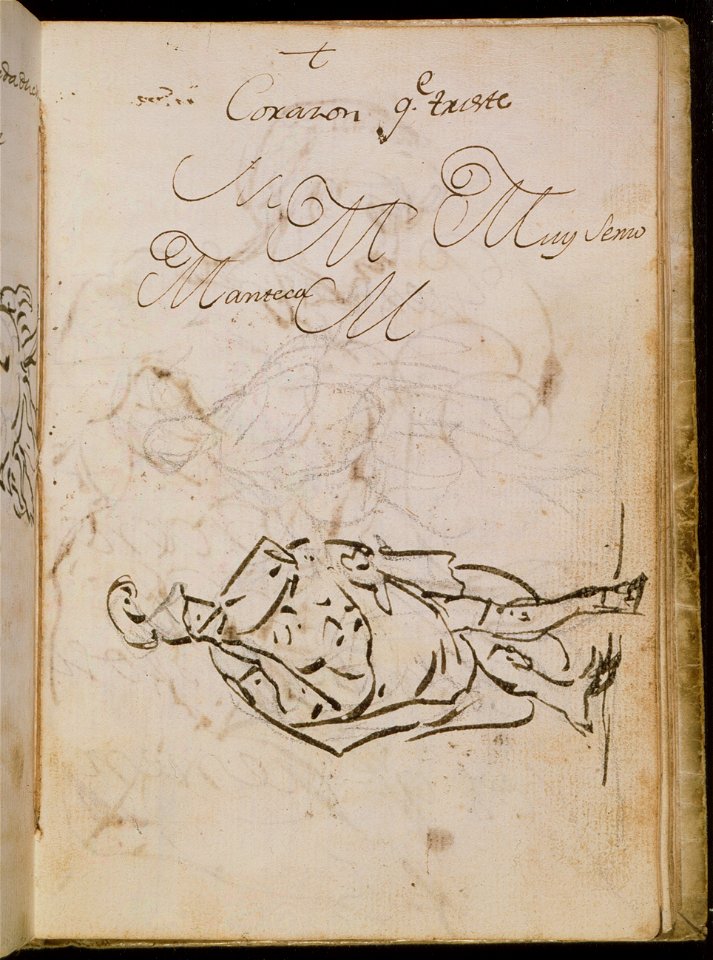 Corazon q.e triste
M M Muy Senro
Manteca M